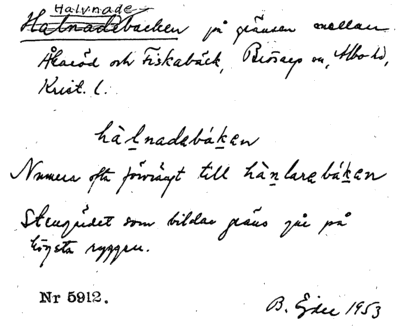 Halvnade-
Halnadebacken på gränsen mellan
Åkaröd och Fiskabäck, Brösarp sn, Albo hd,
Krist. l.
hàlnadabákan
Numera ofta förvrängt till hànlarabákan
Stengärdet som bildar gräns går på
högsta ryggen.
Nr 5912.
B. Ejder 1953